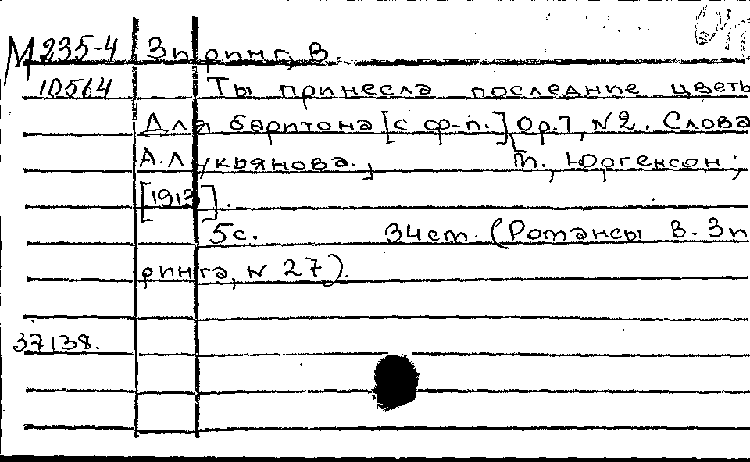 М 235-4 Зпринг, В.
10564 Ты принесла последние цветы
Для баритона [с ф-п.], Ор.7, №2. Слова
А. Лукьянова. П. Юргенсон,
[1913].
5с. 34см. (Романсы В. Зп
ринга, N 27).
37138.